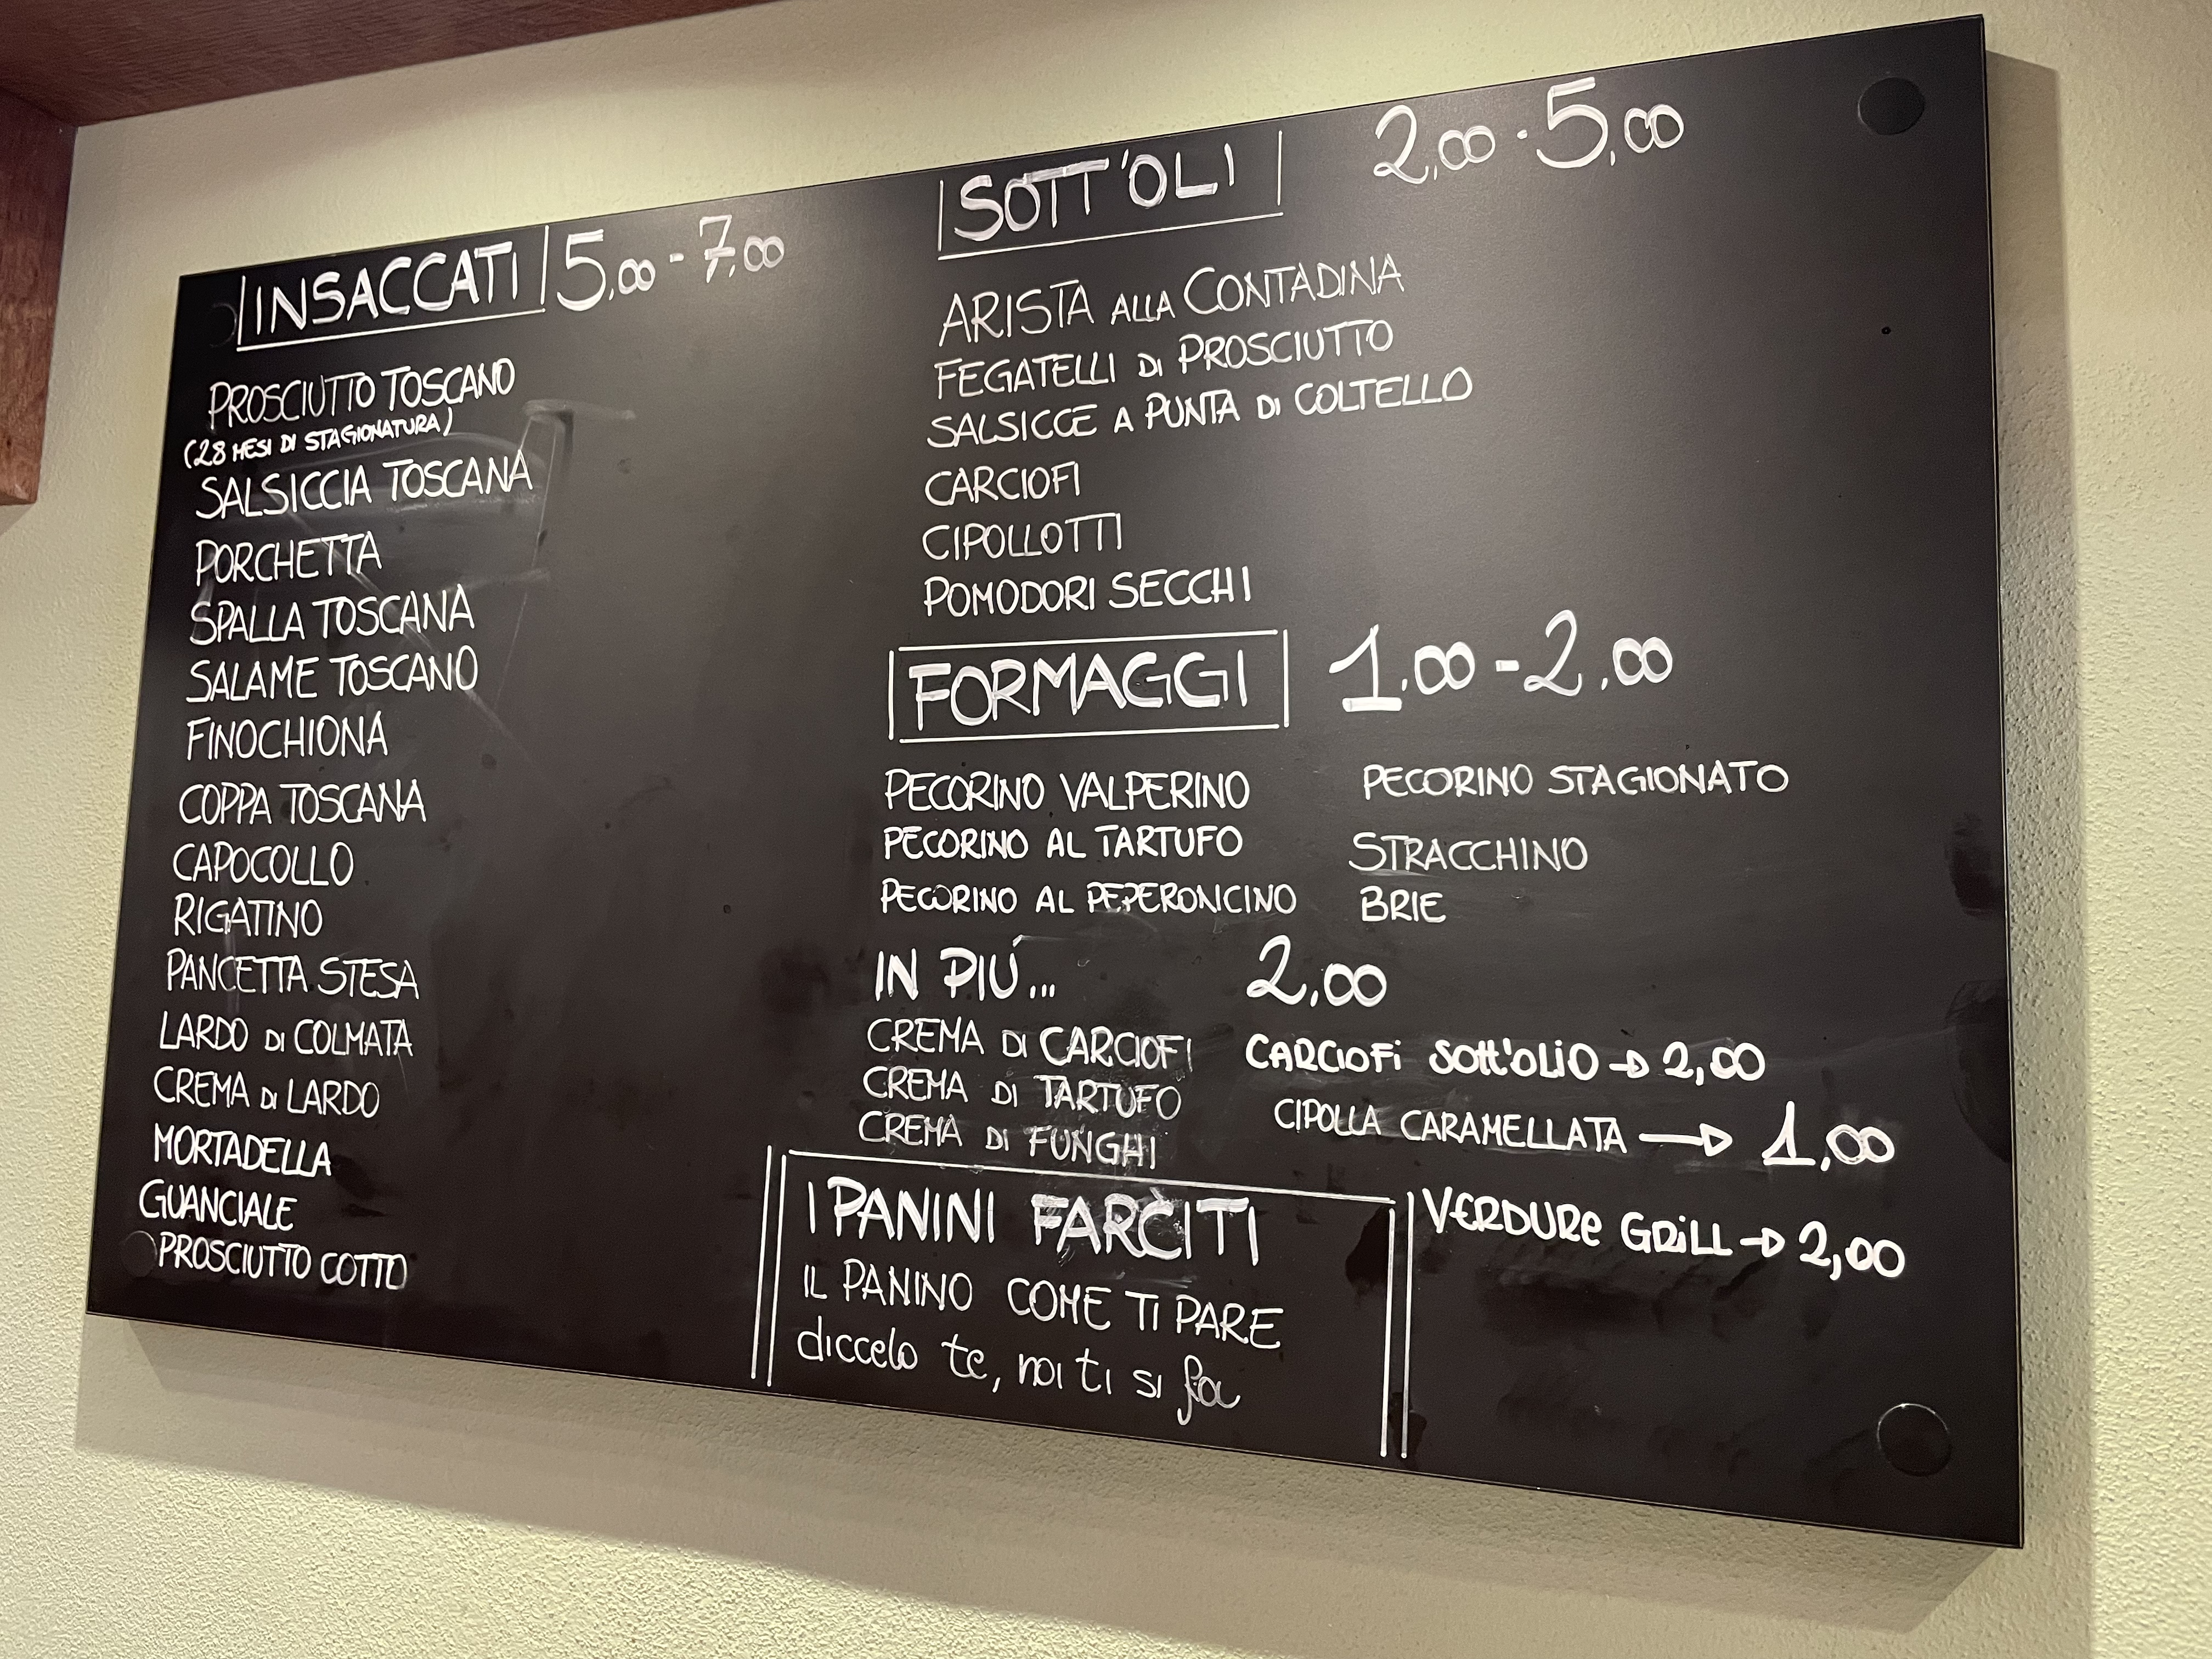 INSACCATI 5,00 - 7,00
PROSCIUTTO TOSCANO
(28 MESI DI STAGIONATURA)
SALSICCIA TOSCANA
PORCHETTA
SPALLA TOSCANA
SALAME TOSCANO
FINOCHIONA
COPPA TOSCANA
CAPOCOLLO
RIGATINO
PANCETTA STESA
LARDO DI COLMATA
CREMA DI LARDO
MORTADELLA
GUANCIALE
PROSCIUTTO COTTO
SOTT'OLI 2,00 - 5,00
ARISTA ALLA CONTADINA
FEGATELLI DI PROSCIUTTO
SALSICCE A PUNTA DI COLTELLO
CARCIOFI
CIPOLLOTTI
POMODORI SECCHI
FORMAGGI 1.00 - 2.00
PECORINO VALPERINO
PECORINO AL TARTUFO
PECORINO AL PEPERONCINO
PECORINO STAGIONATO
STRACCHINO
BRIE
IN PIÚ... 2,00
CREMA DI CARCIOFI
CREMA DI TARTUFO
CREMA DI FUNGHI
CARCIOFI SOTT'OLIO → 2,00
CIPOLLA CARAMELLATA → 1,00
VERDURE GRILL → 2,00
I PANINI FARCITI
IL PANINO COME TI PARE
diccelo te, noi ti si fa